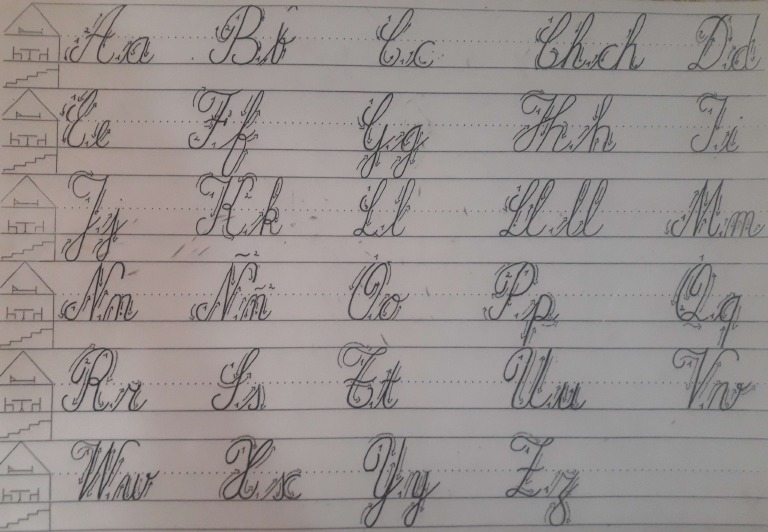 A a B b C c Ch ch D d
E e F f G g H h I i
J j K k L l Ll ll M m
N n Ñ ñ O o P p Q q
R r S s T t U u V v
W w X x Y y Z z